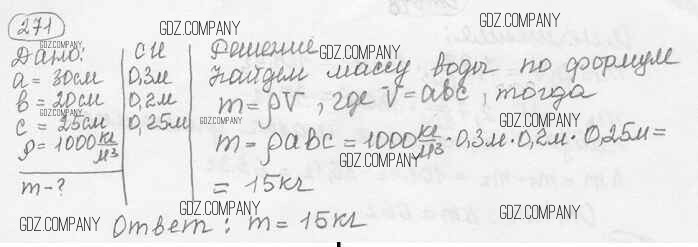 271
GDZ.COMPANY
GDZ.COMPANY
Дано: СИ Решение
GDZ.COMPANY GDZ.COMPANY
a = 30см 0,3м Найдем массу воды по формуле
b = 20см 0,2м m = ρV, где V = abc, тогда
GDZ.COMPANY GDZ.COMPANY
c = 25см 0,25м
GDZ.COMPANY GDZ.COMPANY
ρ = 1000 кг/м3 m = ρabc = 1000 кг/м3 · 0,3м · 0,2м · 0,25м =
GDZ.COMPANY
m - ? = 15кг
GDZ.COMPANY GDZ.COMPANY GDZ.COMPANY
Ответ: m = 15кг